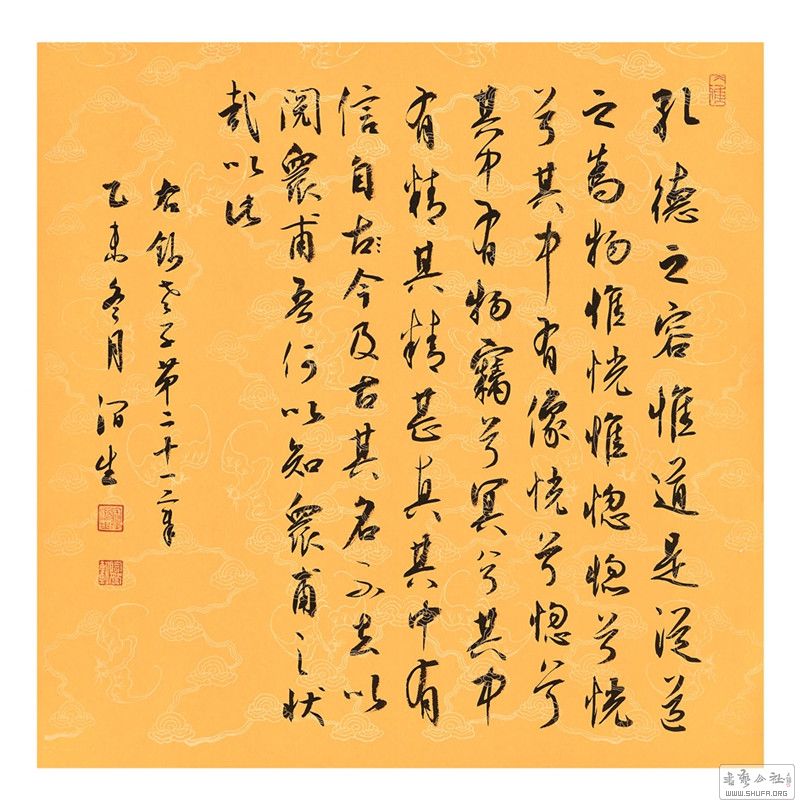 孔德之容惟道是從道
之為物惟恍惟惚惚兮恍
兮其中有像恍兮惚兮
其中有物兮冥兮其中
有精其精甚真其中有
信自古今及古其名不去以
閱眾甫吾何以知眾甫之狀
哉以此
右錄老子第二十一章
乙未冬月生
書藝公社
WWW.SHUFA.ORG